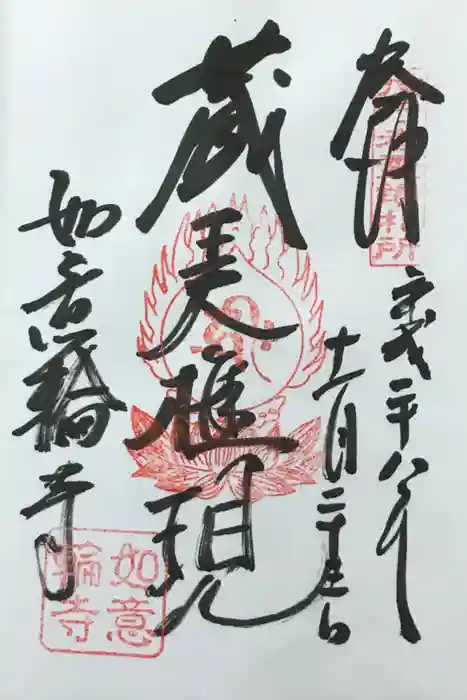 奉拝
平成二十八年
十一月二十三日
蔵王権現
如意輪寺
如意
輪寺